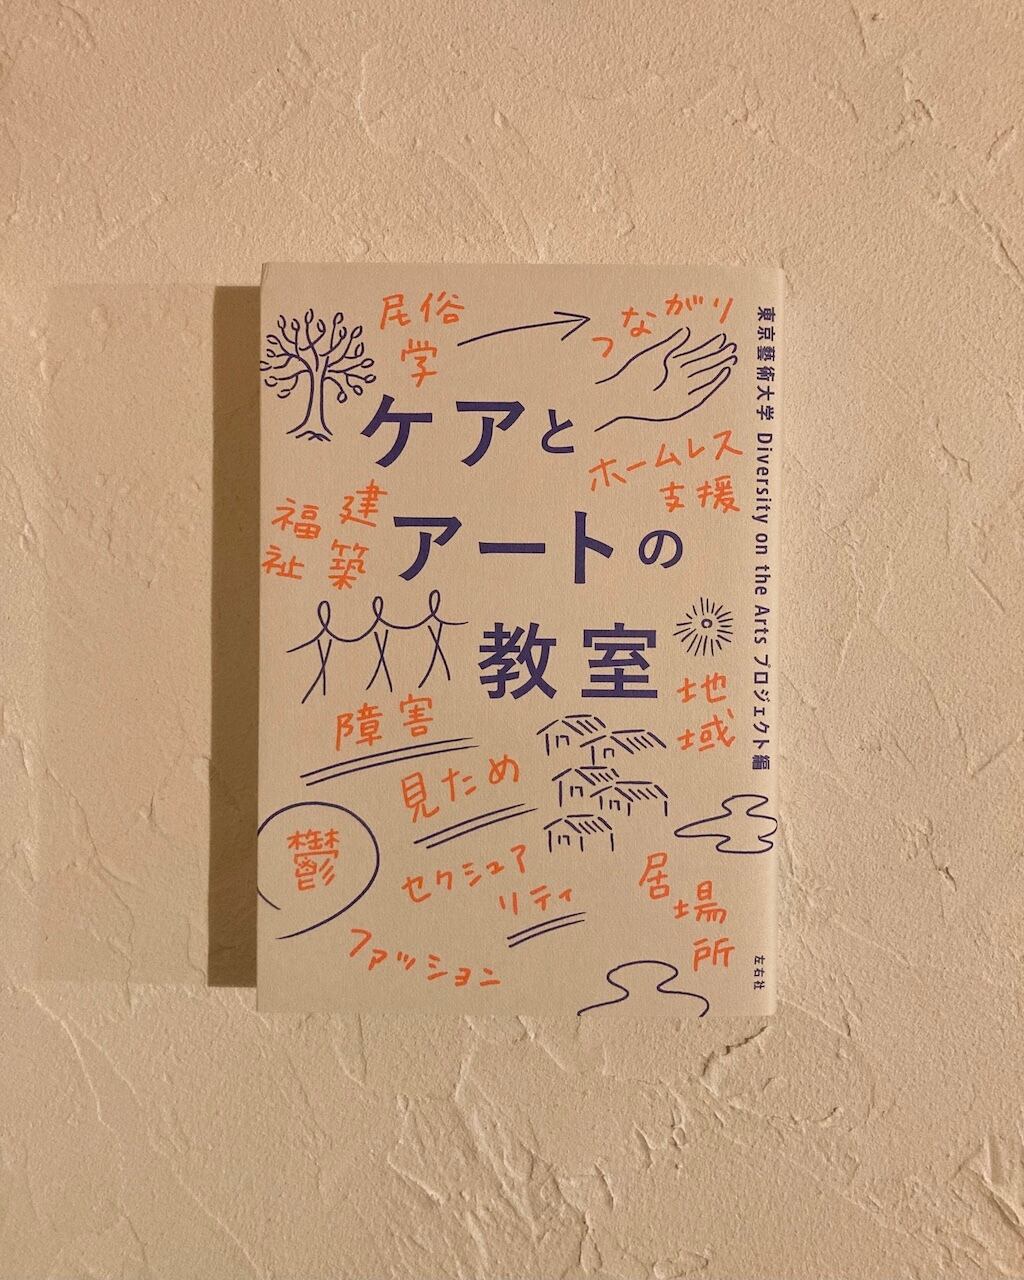 民俗
学
つながり
ケアと
ホームレス
支援
福祉
建築
アートの
教室
障害
地域
見ため
鬱
セクシュア
リティ
居場所
ファッション
東京藝術大学 Diversity on the Arts プロジェクト編
左右社